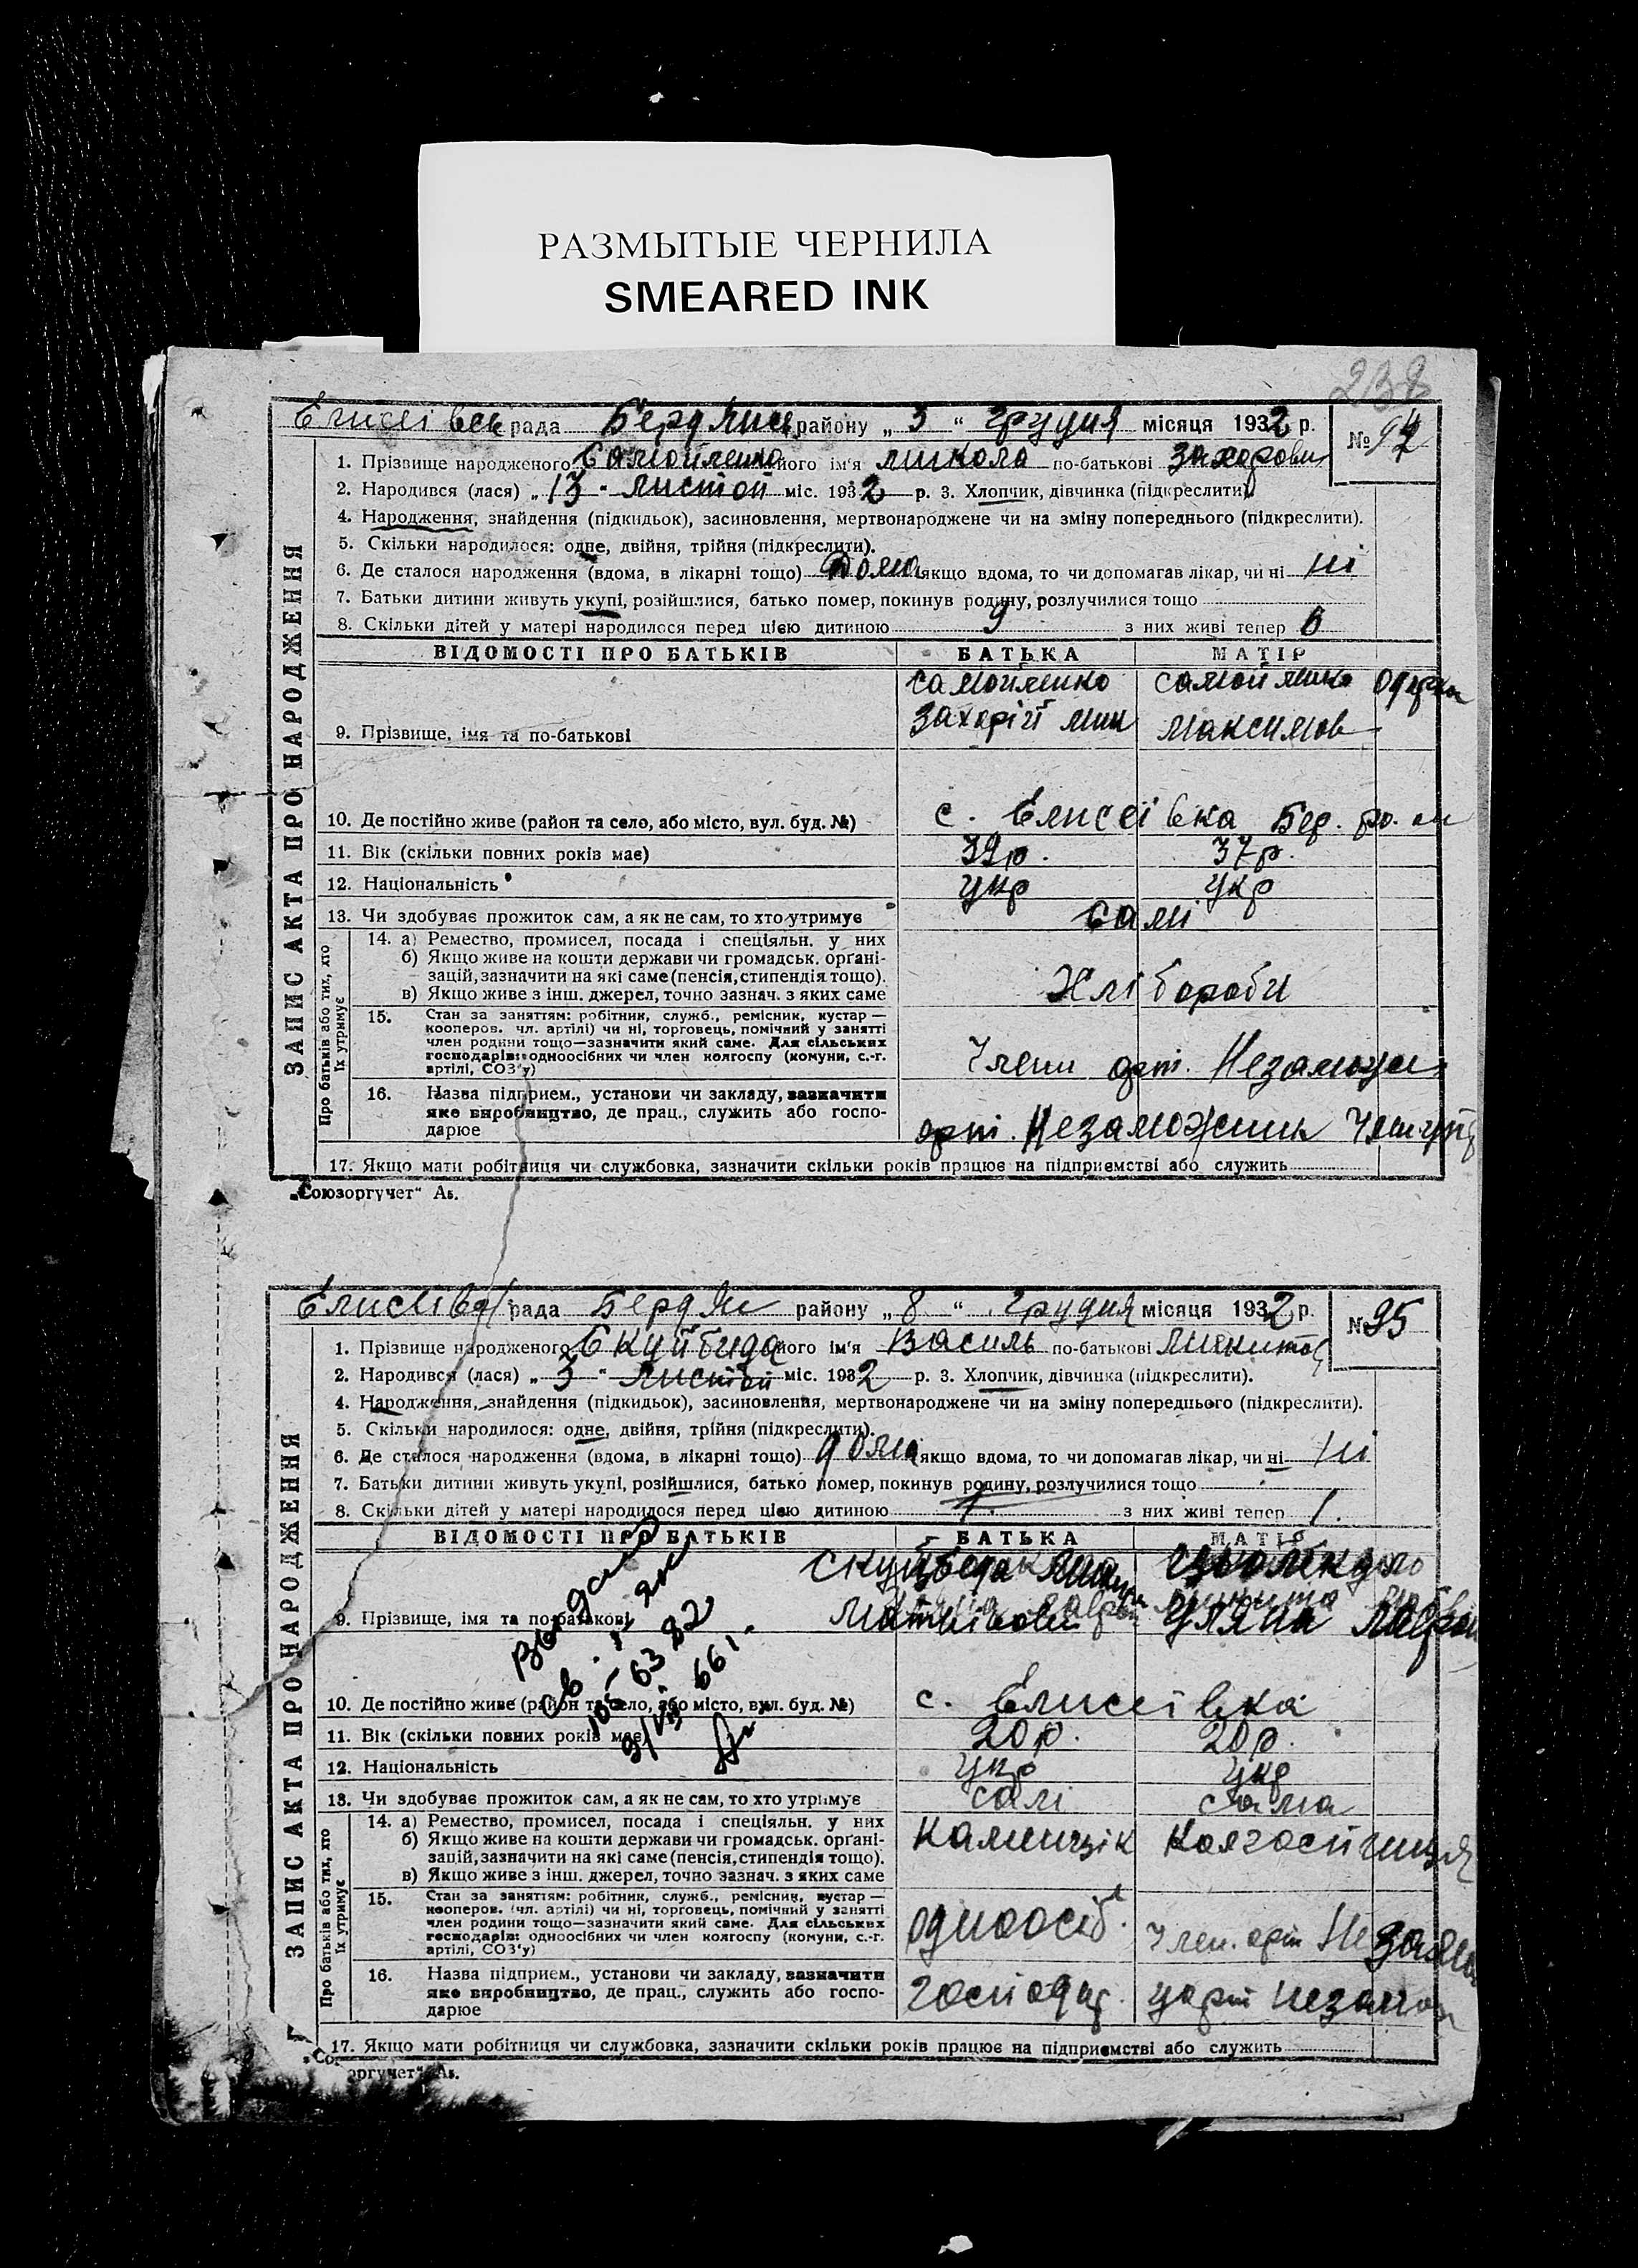 РАЗМЫТЫЕ ЧЕРНИЛА
SMEARED INK
238
Єлисеівськ рада Бердянськ району „ 3 “ грудня місяця 1932 р. № 94
ЗАПИС АКТА ПРО НАРОДЖЕННЯ
1. Прізвище народженого Самойленко його ім'я микола по-батькові захорович
2. Народився (лася) „ 13 “ листоп міс. 1932 р. 3. Хлопчик, дівчинка (підкреслити)
4. Народження, знайдення (підкидьок), засиновлення, мертвонароджене чи на зміну попереднього (підкреслити).
5. Скільки народилося: одне, двійня, трійня (підкреслити).
6. Де сталося народження (вдома, в лікарні тощо) Дома якщо вдома, то чи допомагав лікар, чи ні ні
7. Батьки дитини живуть укупі, розійшлися, батько помер, покинув родину, розлучилися тощо
8. Скільки дітей у матері народилося перед цією дитиною 9 з них живі тепер 6
ВІДОМОСТІ ПРО БАТЬКІВ БАТЬКА МАТІР
самойленко самойленко
9. Прізвище, імя та по-батькові захорій мик максимов
10. Де постійно живе (район та село, або місто, вул. буд. №) с. Єлисеівка Бер.
11. Вік (скільки повних років має) 39 р. 37 р.
12. Національність укр укр
13. Чи здобуває прожиток сам, а як не сам, то хто утримує самі
Про батьків або тих, хто їх утримує
14. а) Ремество, промисел, посада і спеціяльн. у них
б) Якщо живе на кошти держави чи громадськ. орґані-
зацій, зазначити на які саме (пенсія, стипендія тощо).
в) Якщо живе з інш. джерел, точно зазнач. з яких саме
Хлібороби
15. Стан за заняттям: робітник, служб., ремісник, кустар —
кооперов. чл. артілі) чи ні, торговець, помічний у занятті
член родини тощо—зазначити який саме. Для сільських
господарів: одноосібних чи член колгоспу (комуни, с.-г.
артілі, СОЗ'у)
Члени арт. Незаможн
16. Назва підприєм., установи чи закладу, зазначити
яке виробництво, де прац., служить або госпо-
дарює
арт. Незаможник
17. Якщо мати робітниця чи службовка, зазначити скільки років працює на підприємстві або служить
„Союзоргучет“ Ав.
Єлисеівсь рада Бердян району „ 8 “ грудня місяця 1932 р. № 95
ЗАПИС АКТА ПРО НАРОДЖЕННЯ
1. Прізвище народженого Скуйбида його ім'я Василь по-батькові Микитов
2. Народився (лася) „ 3 “ листоп міс. 1932 р. 3. Хлопчик, дівчинка (підкреслити).
4. Народження, знайдення (підкидьок), засиновлення, мертвонароджене чи на зміну попереднього (підкреслити).
5. Скільки народилося: одне, двійня, трійня (підкреслити).
6. Де сталося народження (вдома, в лікарні тощо) дома якщо вдома, то чи допомагав лікар, чи ні ні
7. Батьки дитини живуть укупі, розійшлися, батько помер, покинув родину, розлучилися тощо
8. Скільки дітей у матері народилося перед цією дитиною 1. з них живі тепер 1.
ВІДОМОСТІ ПРО БАТЬКІВ БАТЬКА МАТІР
9. Прізвище, імя та по-батькові Уляна
10. Де постійно живе (район та село, або місто, вул. буд. №) с. Єлисеівка
11. Вік (скільки повних років має) 20 р. 20 р.
12. Національність укр укр
13. Чи здобуває прожиток сам, а як не сам, то хто утримує самі сама
Про батьків або тих, хто їх утримує
14. а) Ремество, промисел, посада і спеціяльн. у них
б) Якщо живе на кошти держави чи громадськ. орґані-
зацій, зазначити на які саме (пенсія, стипендія тощо).
в) Якщо живе з інш. джерел, точно зазнач. з яких саме
Колгоспниця
15. Стан за заняттям: робітник, служб., ремісник, кустар —
кооперов. (чл. артілі) чи ні, торговець, помічний у занятті
член родини тощо—зазначити який саме. Для сільських
господарів: одноосібних чи член колгоспу (комуни, с.-г.
артілі, СОЗ'у)
одноосіб. Член. арт
16. Назва підприєм., установи чи закладу, зазначити
яке виробництво, де прац., служить або госпо-
дарює
господар. у арт незамож
17. Якщо мати робітниця чи службовка, зазначити скільки років працює на підприємстві або служить
оргучет“ Ав.